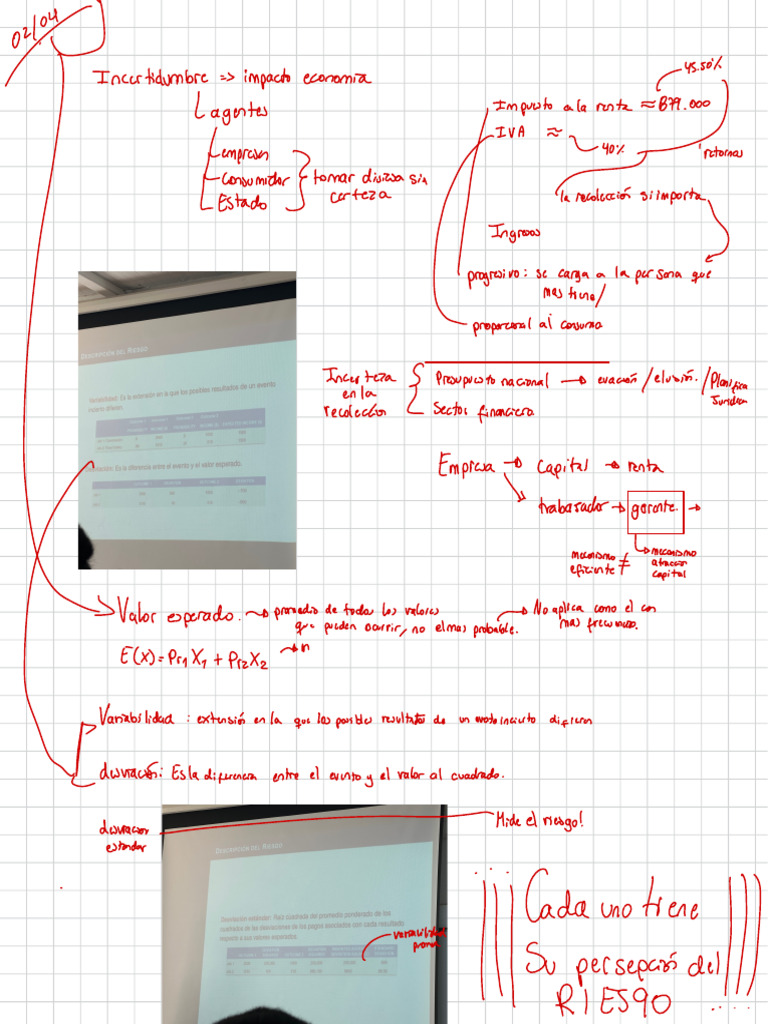 02/04
Incertidumbre => impacto economia
agentes
empresas
Consumidor
Estado
tomar
sin
certeza
45.50%
Impuesto a la renta ≈ 879.000
IVA ≈
40%
retornos
la recolección si importa
Ingresos
progresivo: se carga a la persona que
mas tiene/
proporcional al consumo
Incerteza
en la
recolección
Presupuesto nacional → evación/elusión./Planifica
Juridica
Sector financiero
Empresa → Capital → renta
trabajador → gerente. →
mecanismo
eficiente ≠
mecanismo
atracion
capital
DESCRIPCIÓN DEL RIESGO
Variabilidad: Es la extensión en la que los posibles resultados de un evento
incierto difieren.
Desviación: Es la diferencia entre el evento y el valor esperado.
Valor esperado. → promedio de todos los valores
que pueden ocurrir, no el mas probable.
→ No aplica como el con
mas frecuencia.
E(x) = Pr1 X1 + Pr2 X2 → n
Variabilidad : extensión en la que los posibles resultados de un evento incierto difieren
desviación: Es la diferencia entre el evento y el valor al cuadrado.
desviacion
estandar
Mide el riesgo!
DESCRIPCIÓN DEL RIESGO
Desviación estándar: Raíz cuadrada del promedio ponderado de los
cuadrados de las desviaciones de los pagos asociados con cada resultado
respecto a sus valores esperados.
variabilidad
prom
Cada uno tiene
Su persepción del
RIESGO